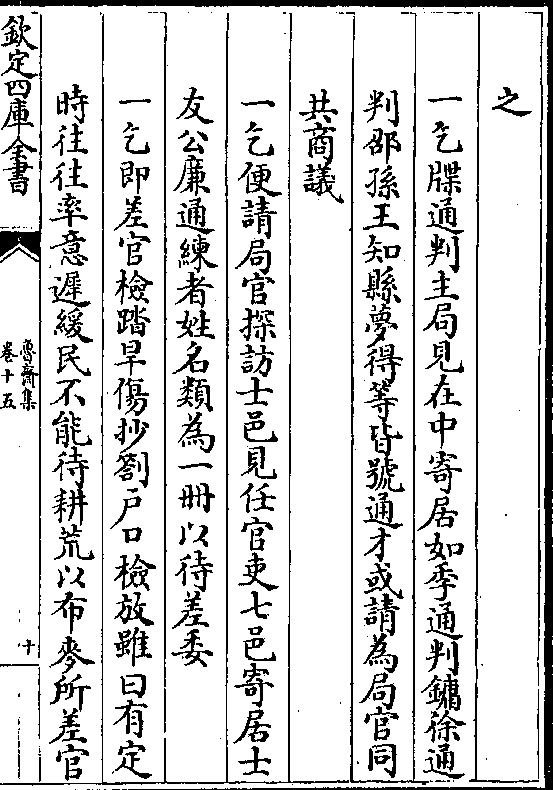 之
一乞牒通判主局見在中寄居如季通判鏞徐通
判邵孫王知縣夢得等皆號通才或請為局官同
共商議
一乞便請局官探訪士邑見任官吏七邑寄居士
友公廉通練者姓名類為一冊以待差委
一乞即差官檢踏旱傷抄劄戶口檢放雖曰有定
時往往率意遲緩民不能待耕荒以布麥所差官
欽定四庫全書
魯齋集
卷十五
十